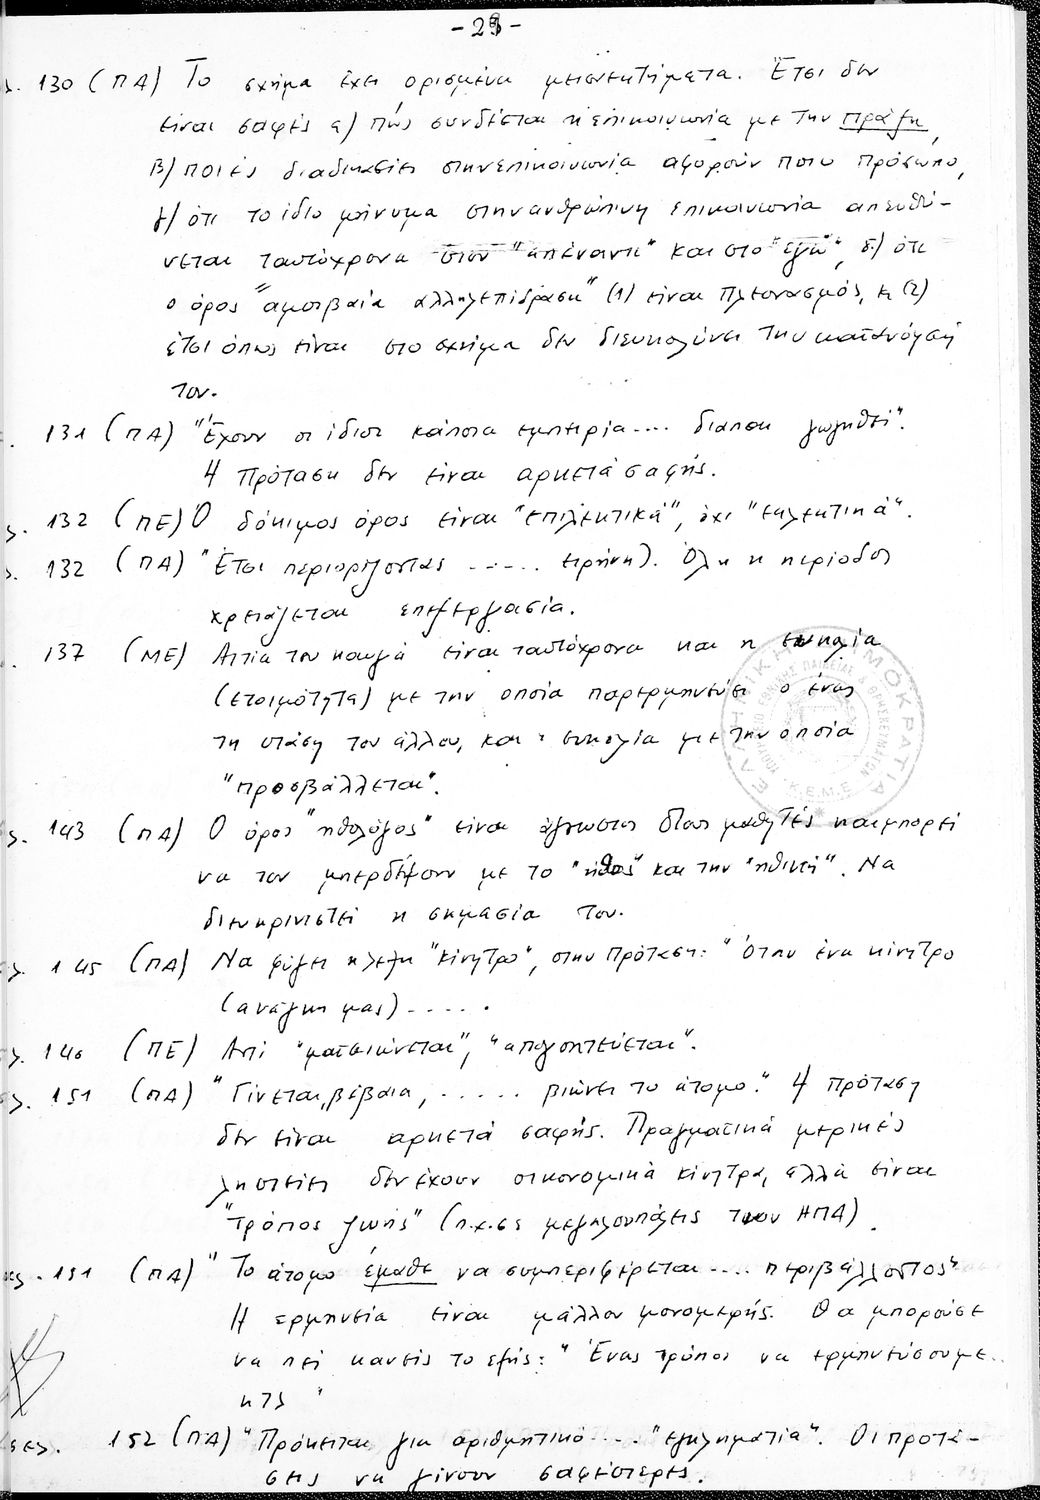 - 29 -
σ. 130 (ΠΑ) Το σχήμα έχει ορισμένα μειονεκτήματα. Έτσι δεν
είναι σαφές α) πώς συνδέεται η επικοινωνία με την πράξη,
β) ποιές διαδικασίες στην επικοινωνία αφορούν ποιο πρόσωπο,
γ) ότι το ίδιο μήνυμα στην ανθρώπινη επικοινωνία απευθύ-
νεται ταυτόχρονα στον "απέναντι" και στο "εγώ", δ) ότι
ο όρος "αμοιβαία αλληλεπίδραση" (1) είναι πλεονασμός, κ (2)
έτσι όπως είναι στο σχήμα δεν διευκολύνει την κατανόησή
του.
131 (ΠΑ) "Έχουν οι ίδιοι κάποια εμπειρία.... διαπαιδαγωγηθεί".
Η πρόταση δεν είναι αρκετά σαφής.
ς. 132 (ΠΕ) Ο δόκιμος όρος είναι "επιλεκτικά", όχι "εκλεκτικά".
ς. 132 (ΠΑ) "Έτσι περιορίζοντας ..... ειρήνη). Όλη η περίοδος
χρειάζεται επεξεργασία.
137 (ΜΕ) Αιτία του καυγά είναι ταυτόχρονα και η ευκολία
(ετοιμότητα) με την οποία παρερμηνεύει ο ένας
τη στάση του άλλου, και η ευκολία με την οποία
"προσβάλλεται".
ΕΛΛΗΝΙΚΗ ΔΗΜΟΚΡΑΤΙΑ
ΥΠΟΥΡΓΕΙΟ ΕΘΝΙΚΗΣ ΠΑΙΔΕΙΑΣ & ΘΡΗΣΚΕΥΜΑΤΩΝ
Κ.Ε.Μ.Ε.
ς. 143 (ΠΑ) Ο όρος "ηθολόγος" είναι άγνωστος στους μαθητές και μπορεί
να τον μπερδέψουν με το "ήθος" και την "ηθική". Να
διευκρινιστεί η σημασία του.
ς. 145 (ΠΑ) Να φύγει η λέξη "κίνητρο", στην πρόταση: "Όταν ένα κίνητρο
(ανάγκη μας) .....
ς. 146 (ΠΕ) Αντί "ματαιώνεται", "απογοητεύεται".
ς. 151 (ΠΑ) "Γίνεται, βέβαια, ..... βιώνει το άτομο." Η πρόταση
δεν είναι αρκετά σαφής. Πραγματικά μερικές
ληστείες δεν έχουν οικονομικά κίνητρα, αλλά είναι
"τρόπος ζωής" (π.χ. σε μεγαλουπόλεις των ΗΠΑ).
σελ. 151 (ΠΑ) "Το άτομο έμαθε να συμπεριφέρεται.... περιβάλλοντος"
Η ερμηνεία είναι μάλλον μονομερής. Θα μπορούσε
να πεί κανείς το εξής: "Ένας τρόπος να ερμηνεύσουμε..
κτλ "
σελ. 152 (ΠΑ) "Πρόκειται για αριθμητικό .... "εγκληματία". Οι προτά-
σεις να γίνουν σαφέστερες.